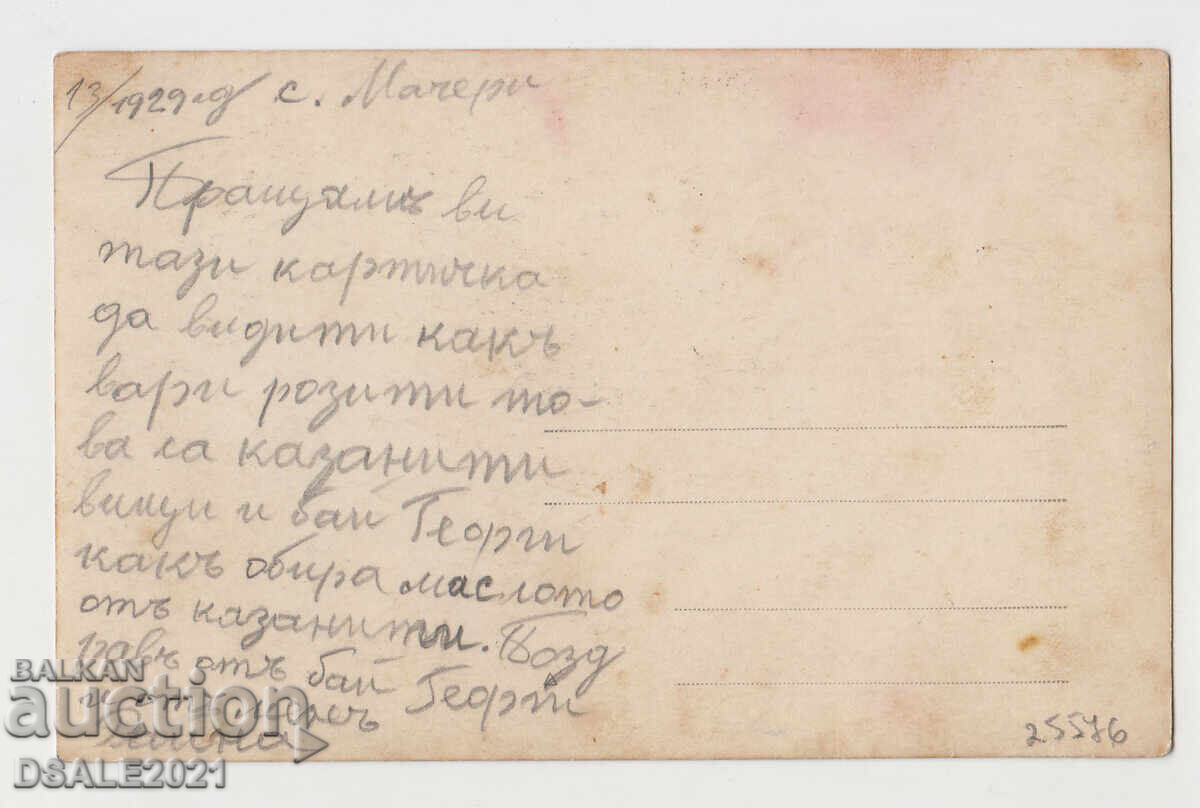 13/1929 год с. Мачери
Пращамъ ви
тази картичка
да видити какъ
вари розити то-
ва са казанити
вижци и бай Георги
какъ обира маслото
отъ казанити. Позд
равъ отъ бай Георги
и отъ менъ
25576
BALKAN
auction
DSALE2021